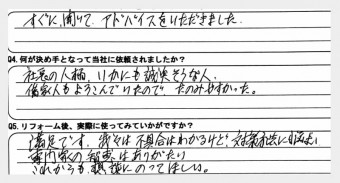 すぐに、聞いて、アドバイスをいただきました。
Q4.何が決め手となって当社に依頼されましたか？
社長の人柄、いかにも誠実そうな人。
よろこんでいたので、たのみやすかった。
Q5.リフォーム後、実際に使ってみていかがですか？
満足です。不具合はわかるけど、対策
専門家の知恵はありがたい
これからも相談にのってほしい。